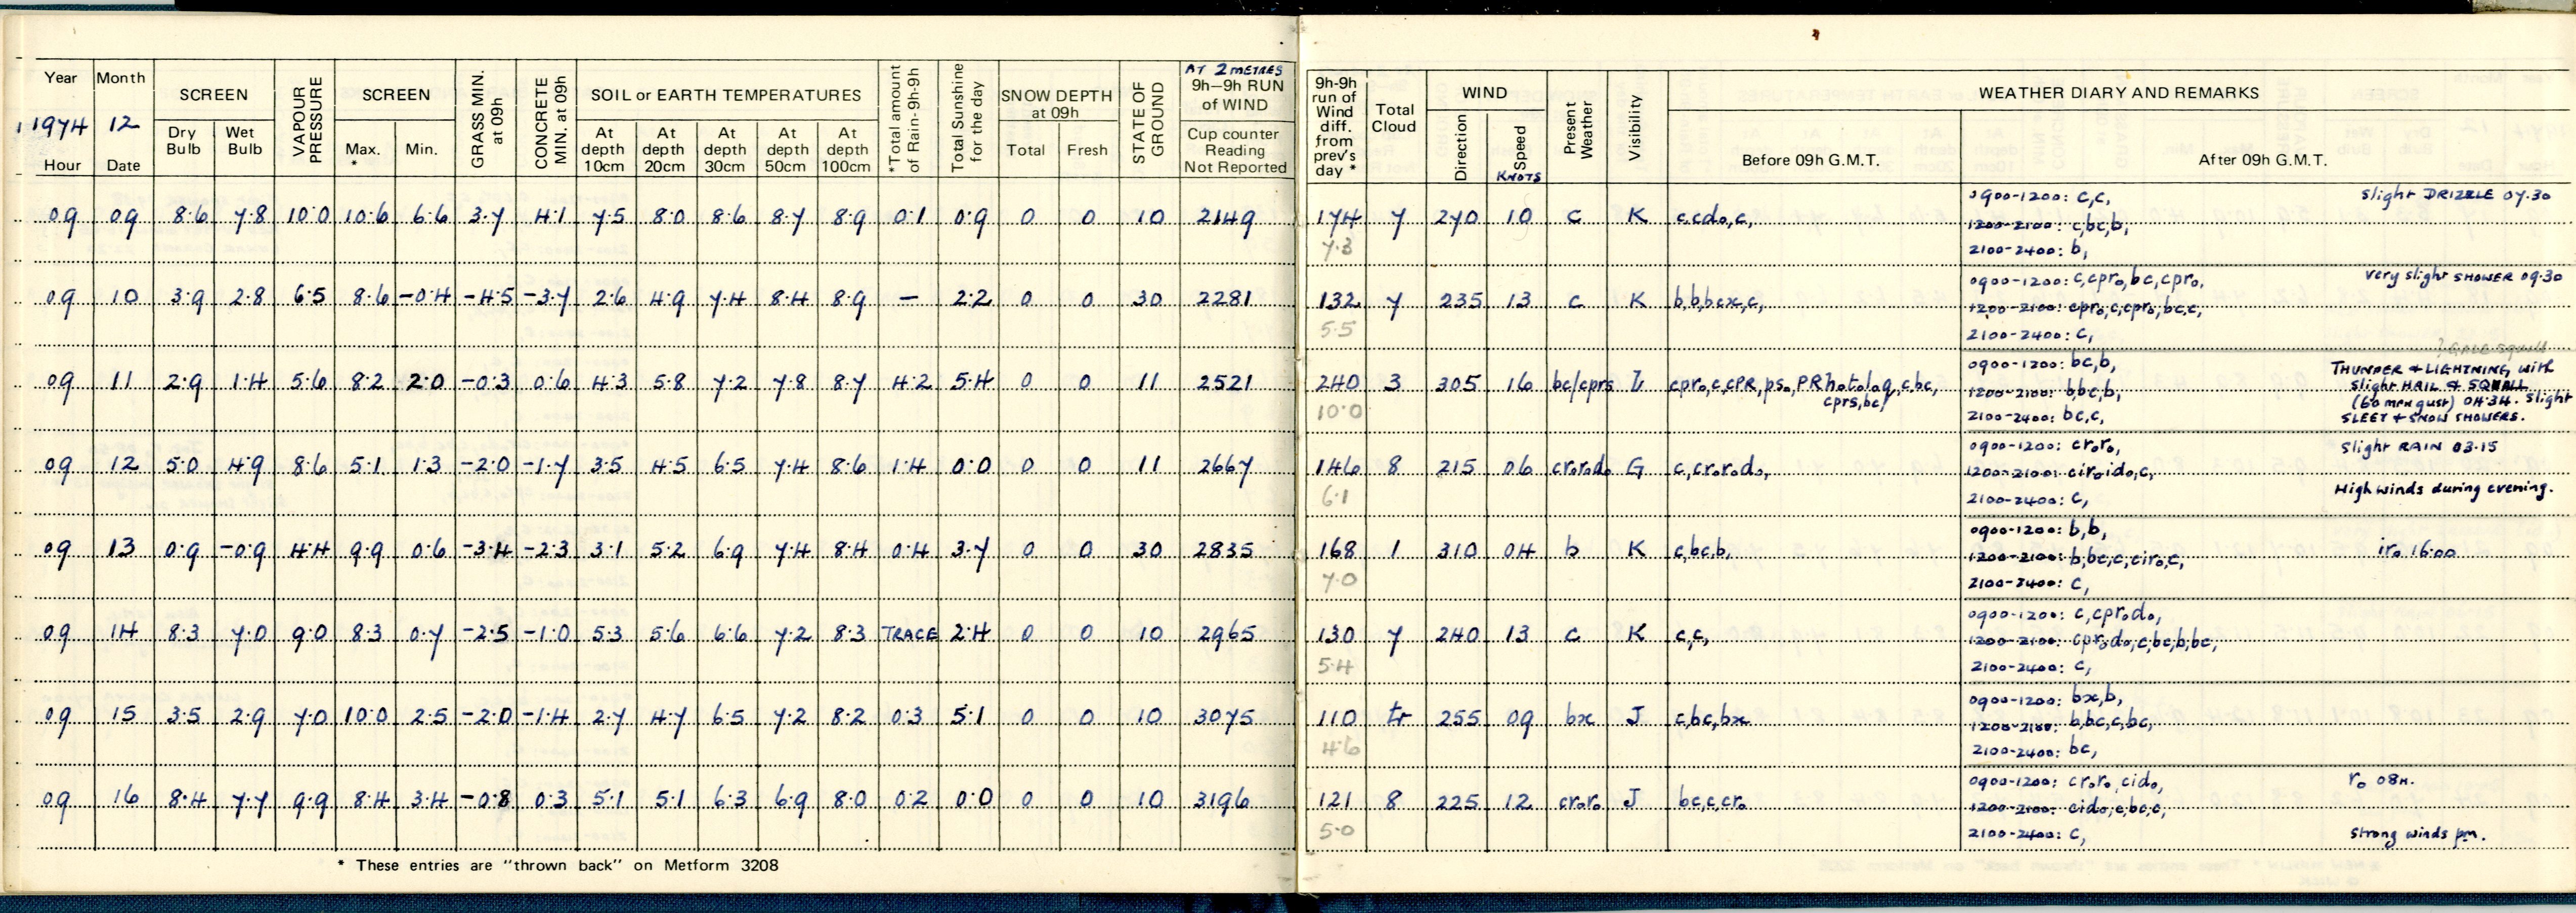 Year Month SCREEN VAPOUR PRESSURE SCREEN GRASS MIN. at 09h CONCRETE MIN. at 09h SOIL or EARTH TEMPERATURES *Total amount of Rain-9h-9h Total Sunshine for the day SNOW DEPTH at 09h STATE OF GROUND AT 2 METRES 9h-9h RUN of WIND
1974 12 Dry Bulb Wet Bulb Max. * Min. At depth 10cm At depth 20cm At depth 30cm At depth 50cm At depth 100cm Total Fresh Cup counter Reading Not Reported
Hour Date
9h-9h run of Wind diff. from prev's day * Total Cloud WIND Direction Speed KNOTS Present Weather Visibility WEATHER DIARY AND REMARKS
Before 09h G.M.T. After 09h G.M.T.
09 09 8.6 7.8 10.0 10.6 6.6 3.7 4.1 7.5 8.0 8.6 8.7 8.9 0.1 0.9 0 0 10 2149 174 7 270 10 c K c,cd₀,c, 0900-1200: c,c, slight DRIZZLE 07.30
1200-2100: c,bc,b,
7.3 2100-2400: b,
09 10 3.9 2.8 6.5 8.6 -0.4 -4.5 -3.7 2.6 4.9 7.4 8.4 8.9 — 2.2 0 0 30 2281 132 7 235 13 c K b,b,bcx,c, 0900-1200: c,cpr₀,bc,cpr₀, very slight SHOWER 09.30
1200-2100: cpr₀,c,cpr₀,bc,c,
5.5 2100-2400: c,
? GALE squall
09 11 2.9 1.4 5.6 8.2 2.0 -0.3 0.6 4.3 5.8 7.2 7.8 8.7 4.2 5.4 0 0 11 2521 240 3 305 16 bc/cprs cpr₀,c,cPR,ps₀,PRh₀t₀l₀q,c,bc, 0900-1200: bc,b, THUNDER & LIGHTNING with
cprs,bc/ 1200-2100: b,bc,b, slight HAIL & SQUALL
10.0 (60 mph gust) 04.34. slight
2100-2400: bc,c, SLEET & SNOW SHOWERS.
09 12 5.0 4.9 8.6 5.1 1.3 -2.0 -1.7 3.5 4.5 6.5 7.4 8.6 1.4 0.0 0 0 11 2667 146 8 215 06 cr₀r₀d₀ G c,cr₀r₀d₀, 0900-1200: cr₀r₀, slight RAIN 03.15
1200-2100: cir₀id₀,c,
6.1 2100-2400: c, High winds during evening.
09 13 0.9 -0.9 4.4 9.9 0.6 -3.4 -2.3 3.1 5.2 6.9 7.4 8.4 0.4 3.7 0 0 30 2835 168 1 310 04 b K c,bc,b, 0900-1200: b,b,
1200-2100: b,bc,c,cir₀,c, ir₀ 16.00
7.0 2100-2400: c,
09 14 8.3 7.0 9.0 8.3 0.7 -2.5 -1.0 5.3 5.6 6.6 7.2 8.3 TRACE 2.4 0 0 10 2965 130 7 240 13 c K c,c, 0900-1200: c,cpr₀d₀,
1200-2100: cpr₀d₀,c,bc,b,bc,
5.4 2100-2400: c,
09 15 3.5 2.9 7.0 10.0 2.5 -2.0 -1.4 2.7 4.7 6.5 7.2 8.2 0.3 5.1 0 0 10 3075 110 tr 255 09 bx J c,bc,bx 0900-1200: bx,b,
1200-2100: b,bc,c,bc,
4.6 2100-2400: bc,
09 16 8.4 7.7 9.9 8.4 3.4 -0.8 0.3 5.1 5.1 6.3 6.9 8.0 0.2 0.0 0 0 10 3196 121 8 225 12 cr₀r₀ J bc,c,cr₀ 0900-1200: cr₀r₀,cid₀, r₀ 08H.
1200-2100: cid₀,c,bc,c,
5.0 2100-2400: c, strong winds pm.
* These entries are "thrown back" on Metform 3208